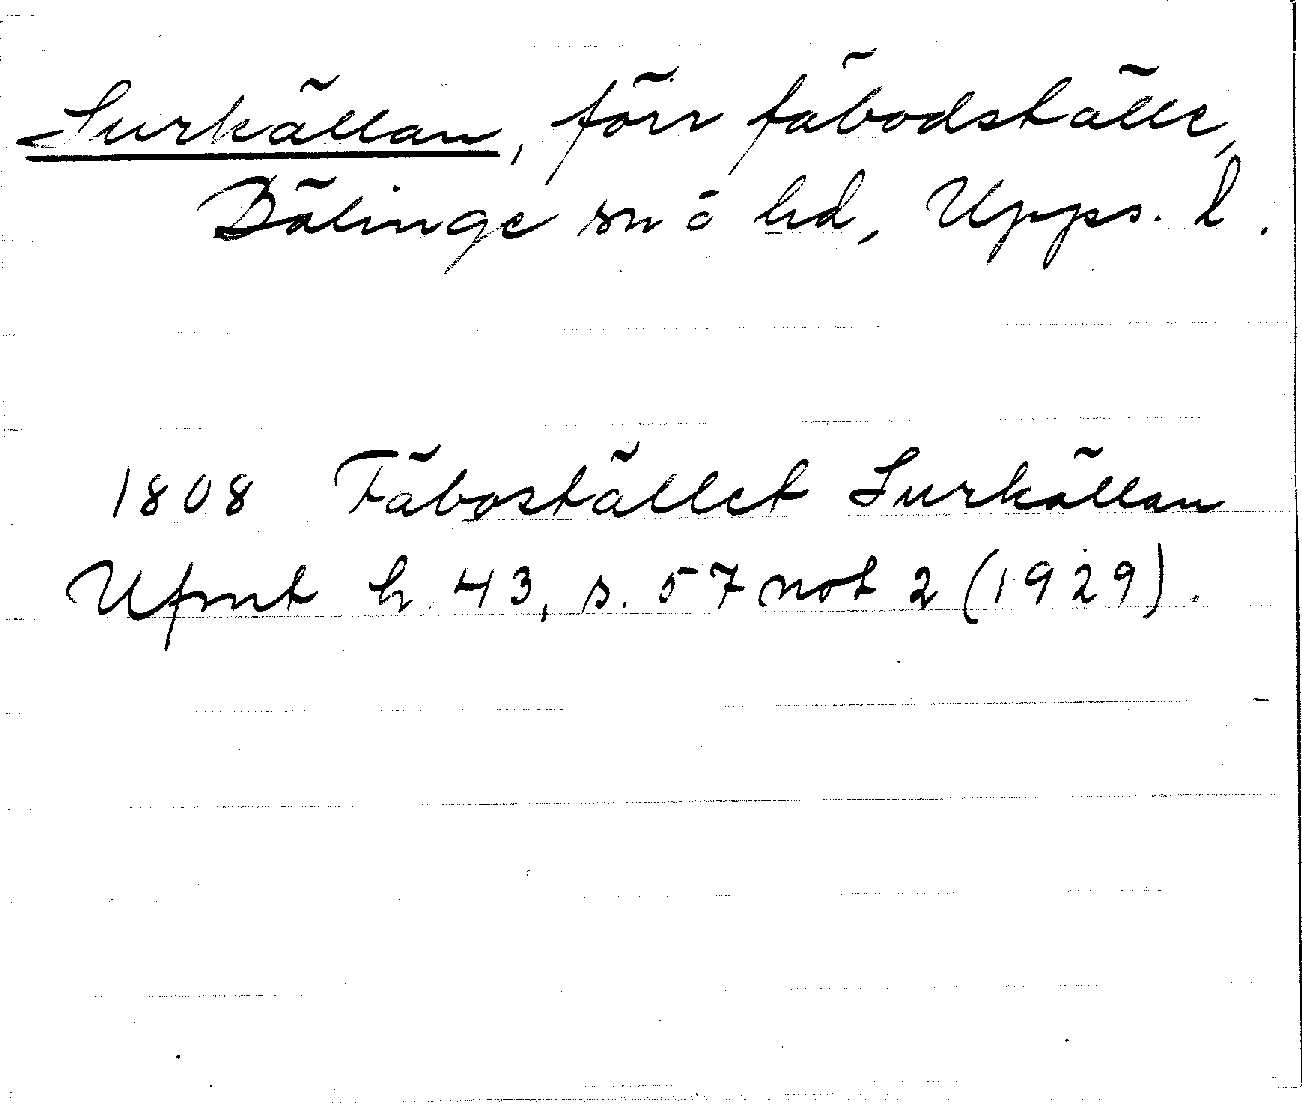 Surkällan, förr fäbodställe,
Bälinge sn o hd, Upps. l.
1808 Fäbostället Surkällan
Ufmt h 43, s. 57 not 2 (1929).